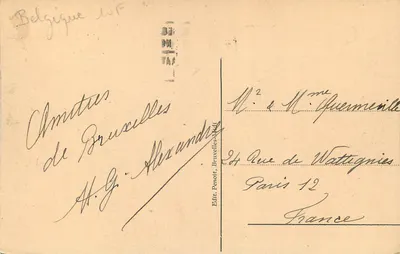 Belgique 10F
Amitiés
de Bruxelles
H. G. Alexandre
Edit. Penoit, Bruxelles
Mr & Mme Quermeville
24 Rue de Wattignies
Paris 12
France